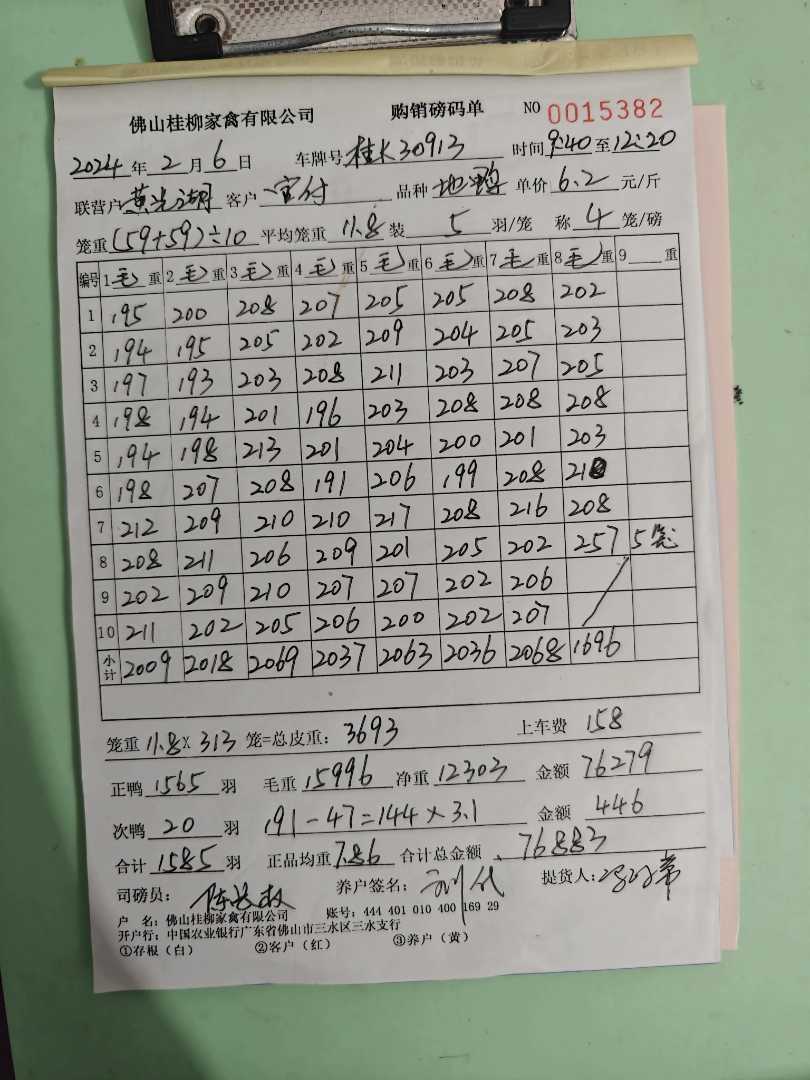 佛山桂柳家禽有限公司 购销磅码单 NO 0015382
2024年2月6日 车牌号 桂K30913 时间9:40至12:20
联营户 黄光湖 客户 品种 地鸭 单价6.2元/斤
笼重(59+59)÷10 平均笼重 11.8 装 5 羽/笼 称 4 笼/磅
编号 1毛重 2毛重 3毛重 4毛重 5毛重 6毛重 7毛重 8毛重 9 重
1 195 200 208 207 205 205 208 202
2 194 195 205 202 209 204 205 203
3 197 193 203 208 211 203 207 205
4 198 194 201 196 203 208 208 208
5 194 198 213 201 204 200 201 203
6 198 207 208 191 206 199 208 210
7 212 209 210 210 217 208 216 208
8 208 211 206 209 201 205 202 257 5笼
9 202 209 210 207 207 202 206
10 211 202 205 206 200 202 207
小计 2009 2018 2069 2037 2063 2036 2068 1696
笼重 11.8× 313 笼=总皮重: 3693 上车费 158
正鸭 1565 羽 毛重 15996 净重 12303 金额 76279
次鸭 20 羽 191-47=144×3.1 金额 446
合计 1585 羽 正品均重 7.86 合计总金额 76883
司磅员: 养户签名: 提货人:
户 名: 佛山桂柳家禽有限公司 账号: 444 401 010 400 169 29
开户行: 中国农业银行广东省佛山市三水区三水支行
①存根(白) ②客户(红) ③养户(黄)